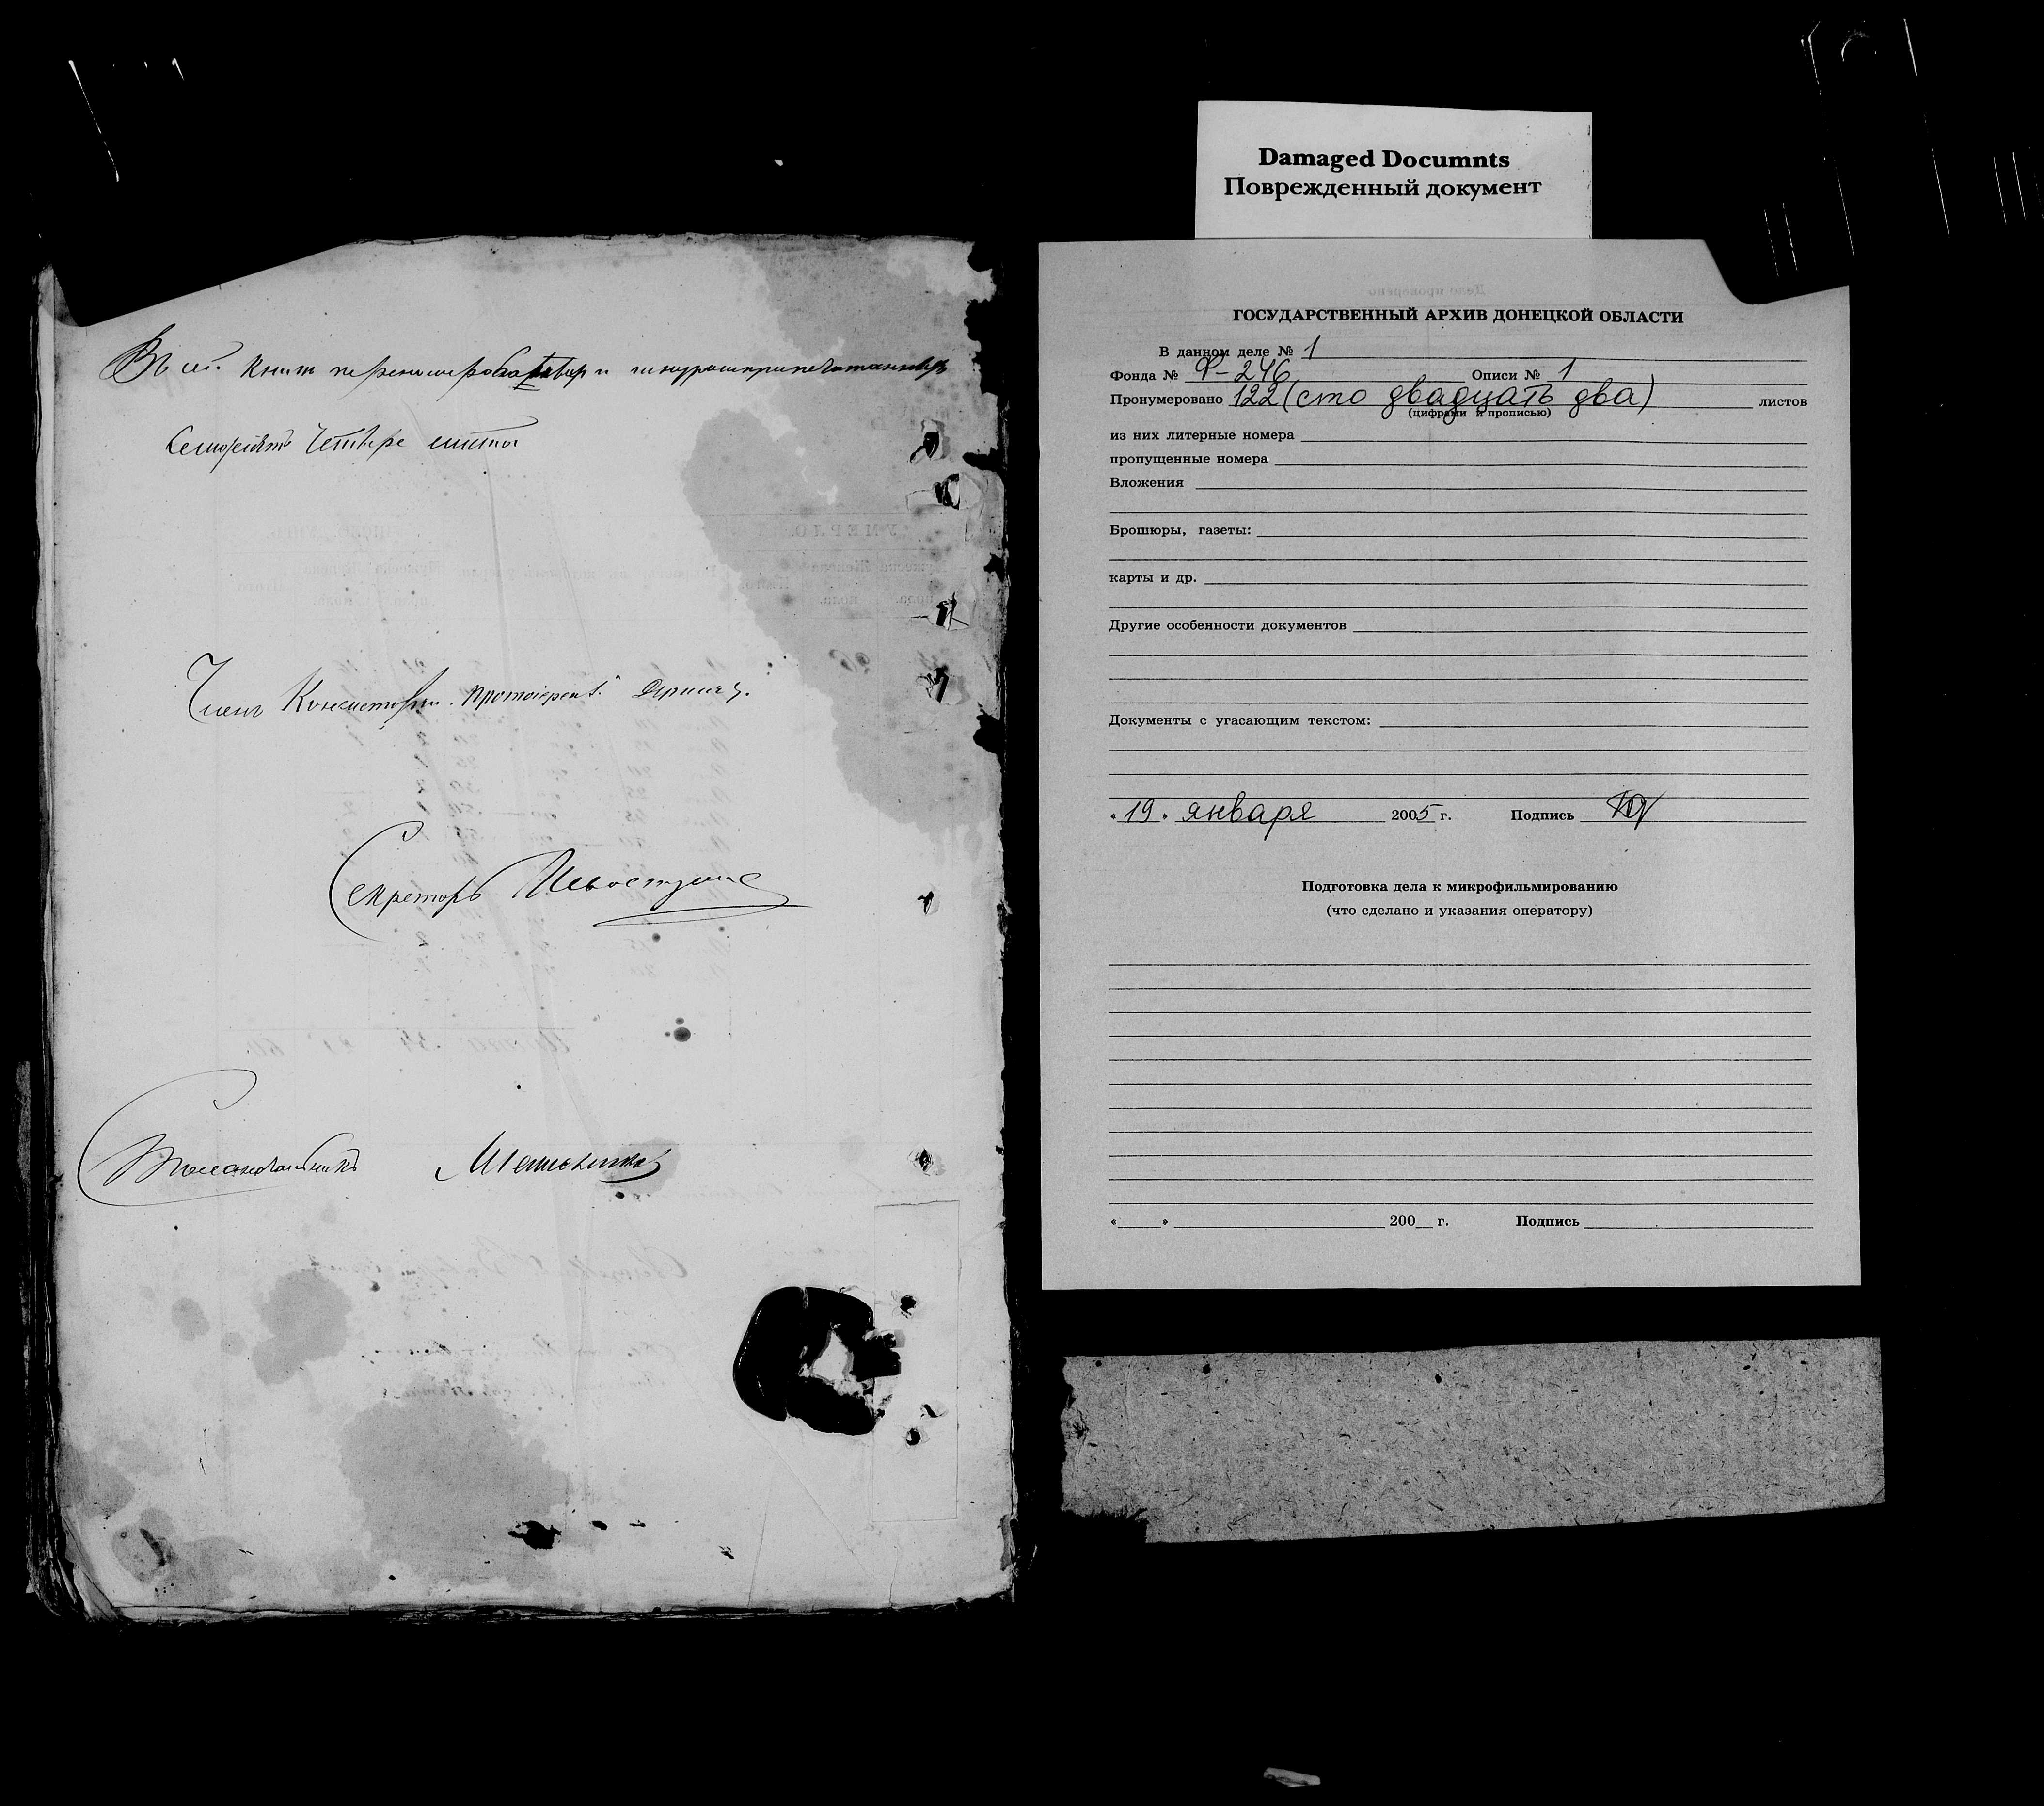 Въ сей книгѣ перенумерова и шнуромприпечатанныхъ
Семьдесятъ Четыре листа
Членъ Консисторіи Протоіерей
Секретарь
Столоначальникъ
Damaged Documnts
Поврежденный документ
ГОСУДАРСТВЕННЫЙ АРХИВ ДОНЕЦКОЙ ОБЛАСТИ
В данном деле № 1
Фонда № Ф-246 Описи № 1
Пронумеровано 122 (сто двадцать два) листов
(цифрами и прописью)
из них литерные номера
пропущенные номера
Вложения
Брошюры, газеты:
карты и др.
Другие особенности документов
Документы с угасающим текстом:
« 19 » января 2005 г. Подпись
Подготовка дела к микрофильмированию
(что сделано и указания оператору)
« » 200 г. Подпись